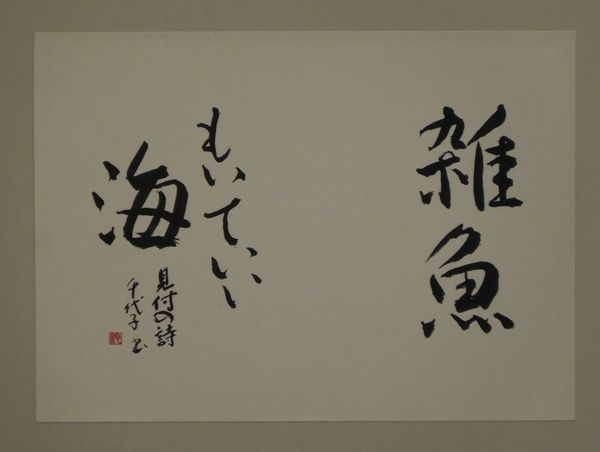 雑魚
もいていい
海
見付の詩
千代子 書